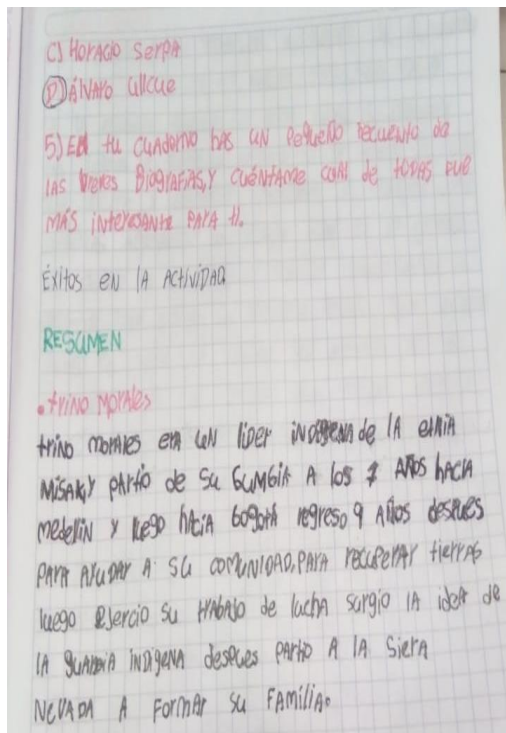 C) Horacio Serpa
D) Álvaro Ulcue
5) En tu cuaderno has un pequeño recuento de
las breves Biografías, y cuéntame cual de todas fue
más interesante para ti.
Éxitos en la actividad
RESUMEN
• trino Morales
trino morales era un lider indigena de la etnia
Misak, y partio de su Gumbia a los 7 años hacia
medellin y luego hacia bogota regreso 9 años despues
para ayudar a su comunidad, para recuperar tierras
luego ejercio su trabajo de lucha surgio la idea de
la guardia indigena despues partio a la Siera
Nevada a formar su familia.